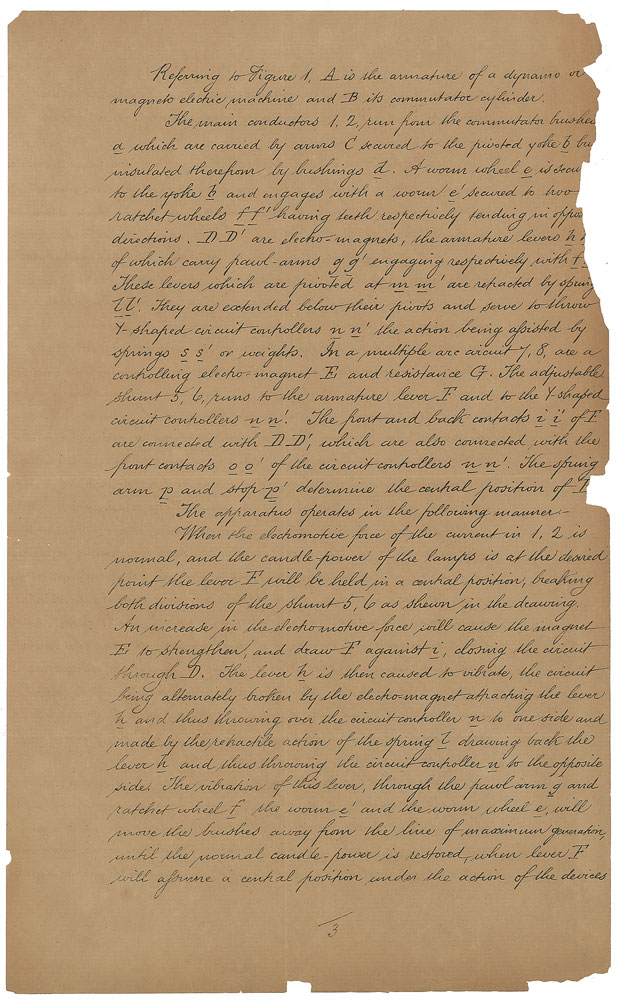 Referring to Figure 1, A is the armature of a dynamo or
magneto electric machine and B its commutator cylinder.
The main conductors 1, 2, run from the commutator brushes
a which are carried by arms C secured to the pivoted yoke b but
insulated therefrom by bushings d. A worm wheel e is secu
to the yoke b and engages with a worm e' secured to two
ratchet wheels f f' having teeth respectively tending in oppos
directions. D D' are electro-magnets, the armature levers h
of which carry pawl-arms g g' engaging respectively with f
These levers which are pivoted at m m' are retracted by spring
l l'. They are extended below their pivots and serve to throw
Y-shaped circuit controllers n n' the action being assisted by
springs s s' or weights. In a multiple arc circuit 7, 8, are a
controlling electro-magnet E and resistance G. The adjustable
shunt 5, 6, runs to the armature lever F and to the Y-shaped
circuit controllers n n'. The front and back contacts i i' of F
are connected with D D', which are also connected with the
front contacts o o' of the circuit controllers n n'. The spring
arm p and stop p' determine the central position of F
The apparatus operates in the following manner:-
When the electromotive force of the current in 1, 2 is
normal, and the candle-power of the lamps is at the desired
point the lever F will be held in a central position, breaking
both divisions of the shunt 5, 6 as shewn in the drawing.
An increase in the electromotive force will cause the magnet
E, to strengthen, and draw F against i, closing the circuit
through D. The lever h is then caused to vibrate, the circuit
being alternately broken by the electro-magnet attracting the lever
h and thus throwing over the circuit controller n to one side and
made by the retractile action of the spring l drawing back the
lever h and thus throwing the circuit controller n to the opposite
side. The vibration of this lever, through the pawl arm g and
ratchet wheel f the worm e' and the worm wheel e, will
move the brushes away from the line of maximum generation,
until the normal candle-power is restored, when lever F
will assume a central position under the action of the devices
3